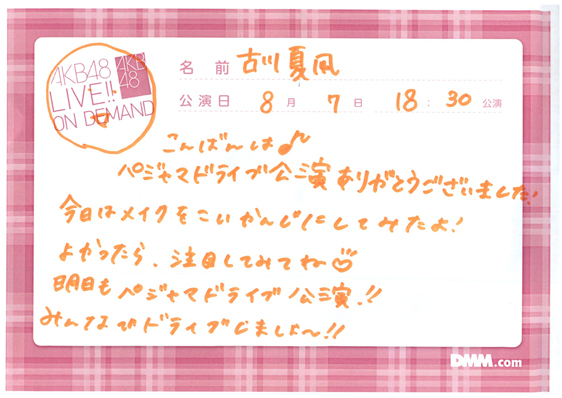 AKB48
LIVE!!
ON DEMAND
AKB
48
名前 古川夏凪
公演日 8月7日 18:30公演
こんばんは♪
パジャマドライブ公演ありがとうございました!
今日はメイクをこいかんじにしてみたよ!
よかったら、注目してみてね
明日もパジャマドライブ公演!!
みんなでドライブしましょ〜!!
DMM.com